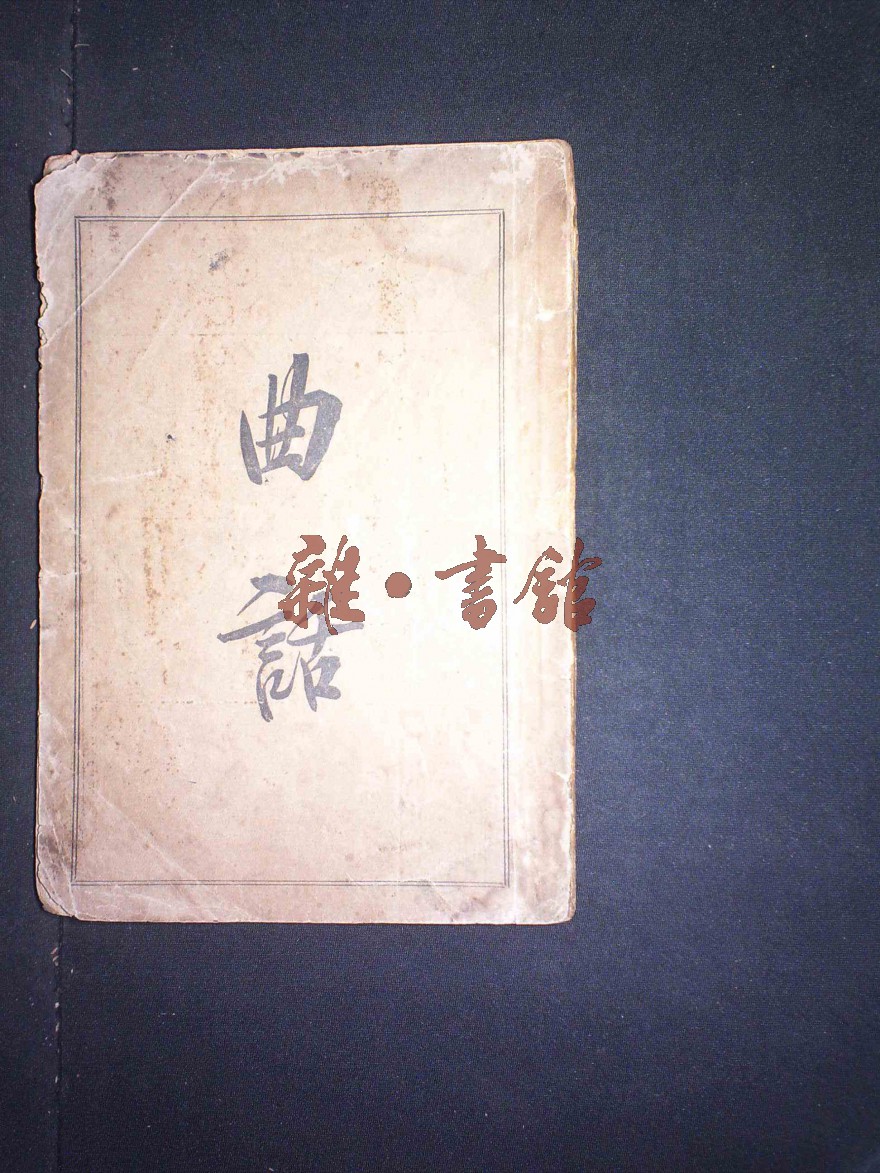 曲
話
雜·書館